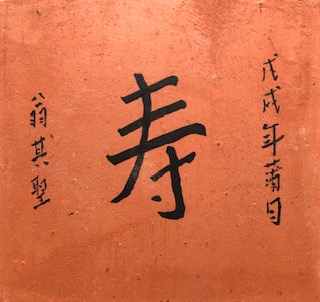 戊戌年蒲月
寿
翁其聖